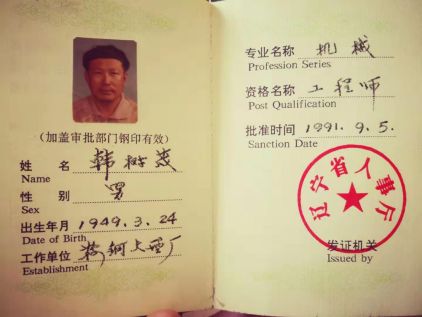 (加盖审批部门钢印有效)
姓 名 韩树茂
Name
性 别 男
Sex
出生年月 1949.3.24
Date of Birth
工作单位
Establishment
专业名称 机械
Profession Series
资格名称 工程师
Post Qualification
批准时间 1991.9.5.
Sanction Date
辽宁省人事厅
发证机关
Issued by